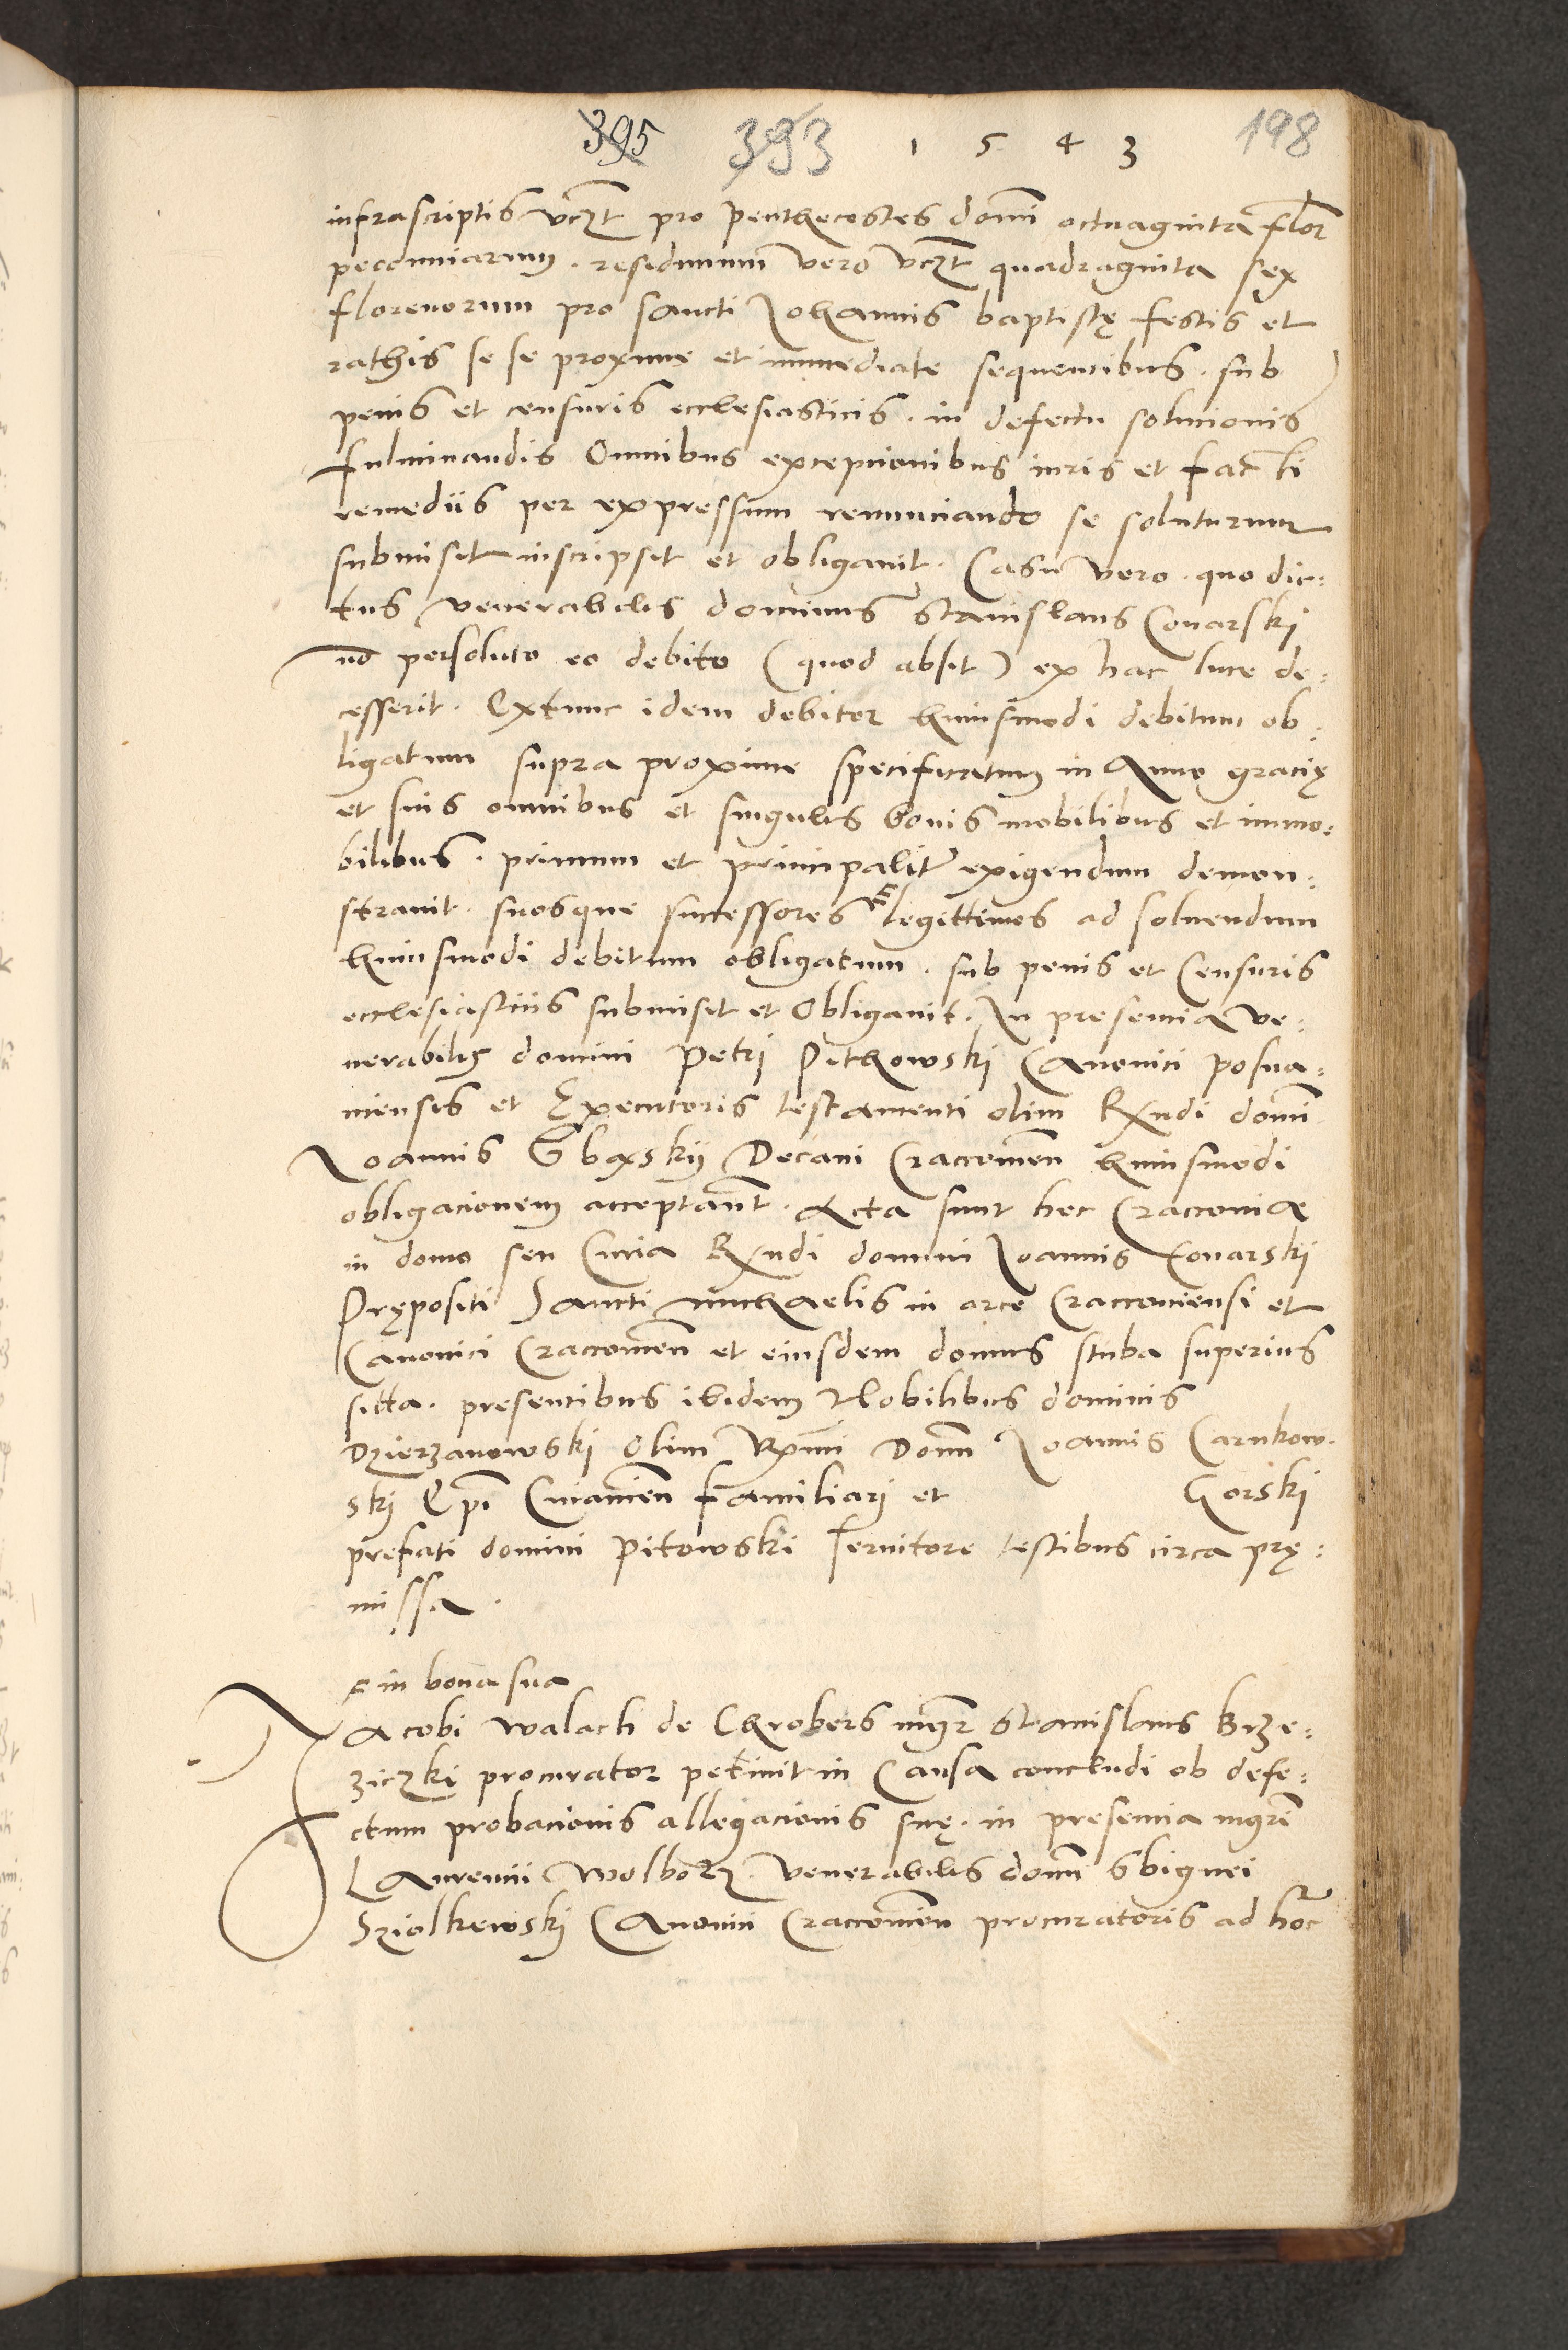 395 393 1 5 4 3 198
infrascriptis vczt pro Penthecostes domi octuaginta flor
pecunniarum . residuum vero vczt quadraginta sex
florenorum pro sancti Johannis baptistę festis et
rathis se se proxime et immediate sequentibus . sub
penis et censuris ecclesiasticis . in defectu solucionis
fulminandis Omnibus excepcionibus iuris et facti
remediis per expressum renunciando se soluturum
submisit inscripsit et obligavit . Casu vero . quo dic:
tus venerabilis dominus Stanislaus Conarskj
no persoluto eo debito (quod absit) ex hac luce de:
cesserit . Extunc idem debitor huiusmodi debitum ob:
ligatum supra proxime specificatum in Anno gracię
et suis omnibus et singulis bonis mobilibus et immo:
bilibus . primum et principalit exigendum demon:
stravit . suosque successores legittimos ad solvendum
huiusmodi debitum obligatum . sub penis et Censuris
ecclesiasticis submisit et Obligavit . In presencia ve:
nerabilis domini Petrj Pithowskj Canonici Posna:
niensis et Executoris testamenti olim Rxndi domi
Joannis Gbaxskij Decani Craccovien huiusmodi
obligacionem acceptant . Acta sunt hec Craccoviæ
in domo seu Curia Rxndi domini Joannis Conarski
Prępositi Sancti Michaelis in arce Craccoviensi et
Canonici Craccovien et eiusdem domus stuba superius
sitta . presentibus ibidem Nobilibus dominis
Dzierzanowski Olim Rxmi Domi Joannis Carnkow.
skj Epi Cuiavien familiarj et Gorskj
prefati domini Pitowski servitore testibus circa prę:
missa .
in bona sua
Jacobi Walach de Chrobers mgr Stanislaus Brze:
ziczki procurator petivit in Causa concludi ob defe:
ctum probacionis allegacionis suę . in presencia mgri
Laurencii Wolborz . venerabilis domi Sbignei
Sziolkowskj Canonici Craccovien procuratoris ad hoc